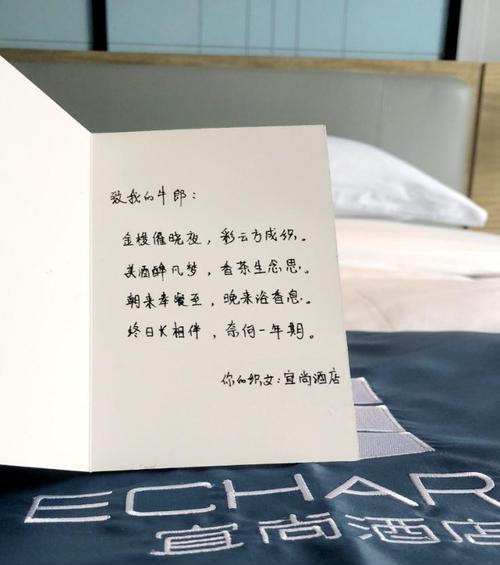 致我的牛郎：
金梭催晓夜，彩云方成织。
美酒醉凡梦，香茶生念思。
朝来幸餐至，晚来浴香息。
终日长相伴，奈何一年期。
你的织女：宜尚酒店
ECHAR
宜尚酒店